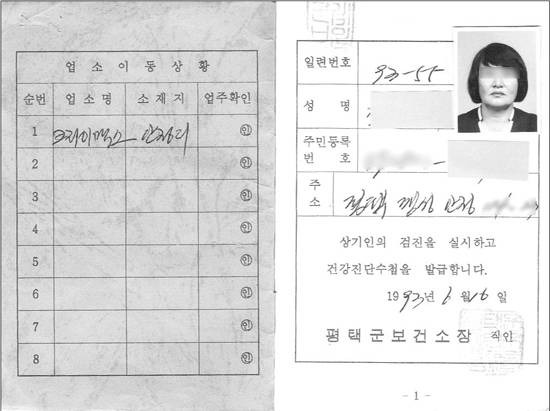 업소이동상황
순번 업소명 소재지 업주확인
1 크라이막스 안정리 ㊞
2 ㊞
3 ㊞
4 ㊞
5 ㊞
6 ㊞
7 ㊞
8 ㊞
일련번호 93-55
성명
주민등록
번호 -
주소 평택 팽성 안정
상기인의 검진을 실시하고
건강진단수첩을 발급합니다.
1993년 6월 16일
평택군보건소장 직인
- 1 -